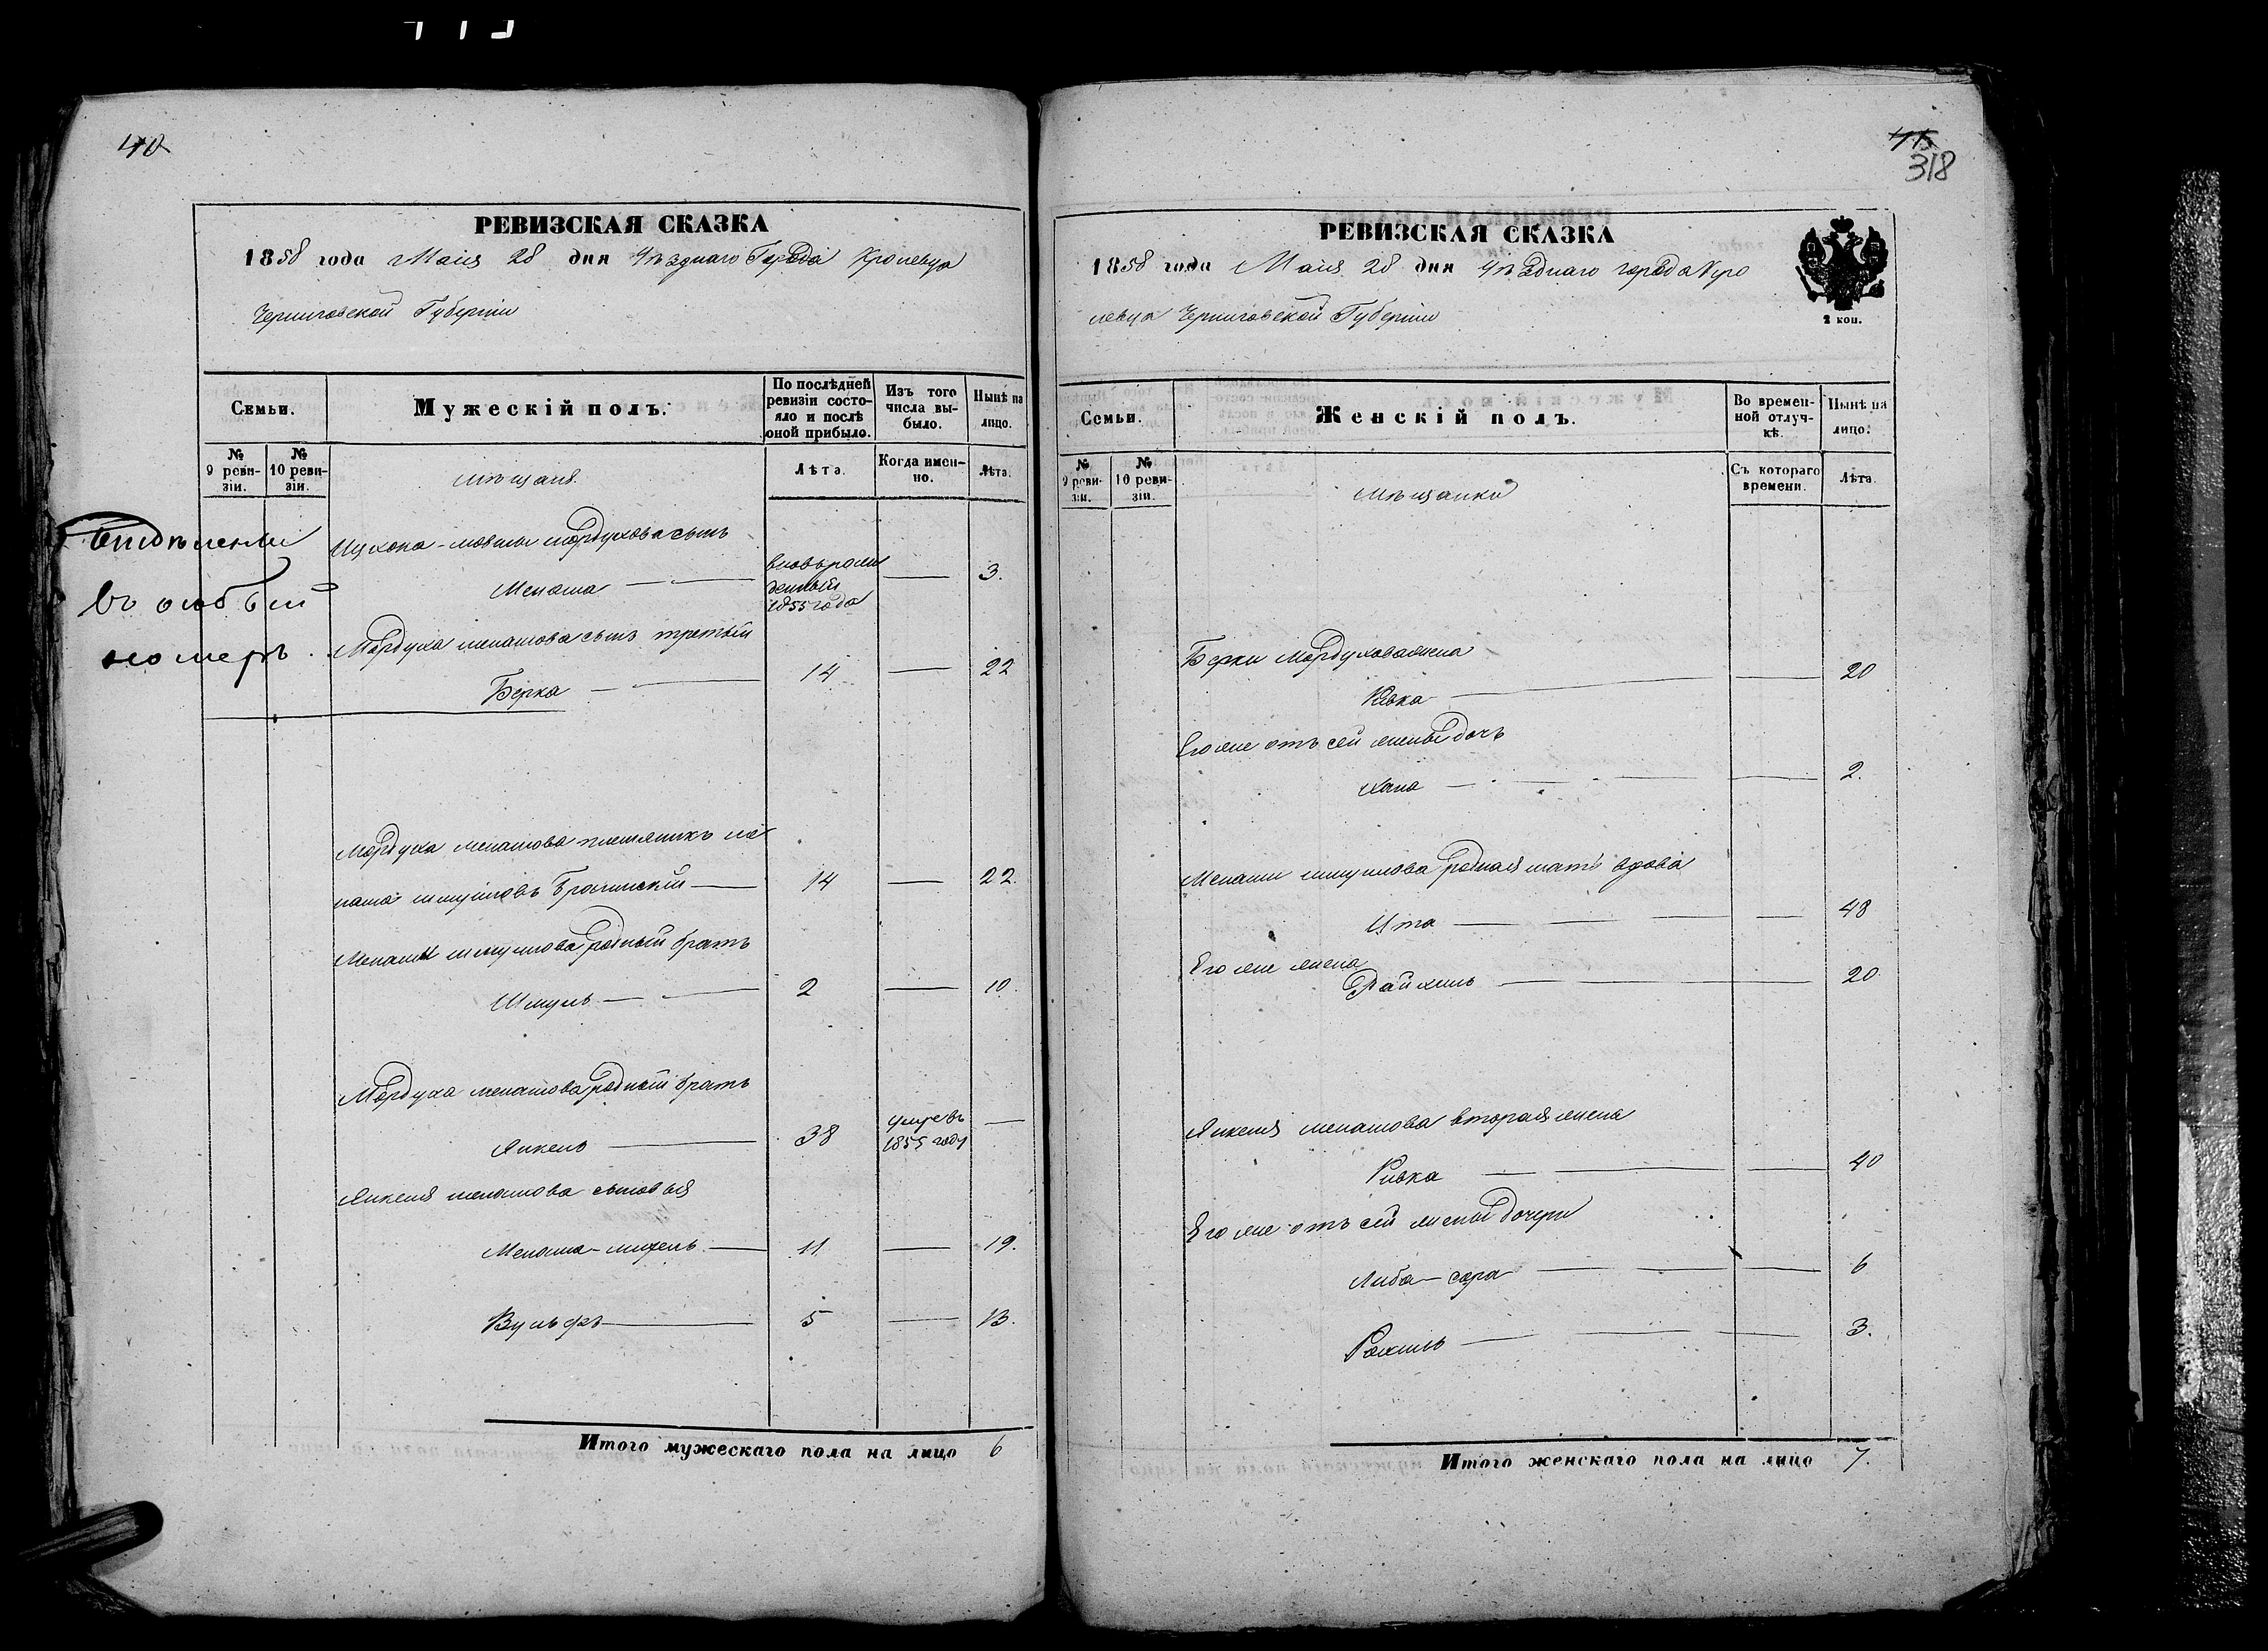 40
РЕВИЗСКАЯ СКАЗКА
1858 года Маія 28 дня Уѣзднаго Города Кролевца
Черниговской Губерніи
Семьи.
Мужескій полъ.
По послѣдней ревизіи состояло и послѣ оной прибыло.
Изъ того числа выбыло.
Нынѣ на лицо.
№ 9 ревизіи.
№ 10 ревизіи.
мѣщане
Лѣта.
Когда именно.
Лѣта.
въ особый
номеръ.
Мордухова сынъ
Менаша — вновьрожденный 1855 года — 3.
Мордуха менашова сынъ третьій
Берка — 14 — 22
Мордуха менашова племянникъ ме
наша шмуиловъ — 14 — 22.
Менаши шмуилова родный братъ
Шмуль — 2 — 10.
Мордуха менашова родный братъ
Янкель — 38 умре въ 1855 году —
Янкеля менашова сыновья
Менаша — 11 — 19.
Вульфъ — 5 — 13.
Итого мужескаго пола на лицо 6
318
РЕВИЗСКАЯ СКАЗКА
1858 года Маія 28 дня Уѣзднаго города Кро
левца Черниговской Губерніи
2 коп.
Семьи.
Женскій полъ.
Во временной отлучкѣ.
Нынѣ на лицо.
№ 9 ревизіи.
№ 10 ревизіи.
мѣщанки
Съ котораго времени.
Лѣта.
Берки Мордухова жена
Ривка — 20
Его же отъ сей жены дочь
Хана — 2.
Менаши шмуилова родная мать вдова
Ита — 48
Его же жена
— 20
Янкеля менашова вторая жена
Ривка — 40
Его же отъ сей жены дочери
Либа-сора — 6
Рохиль — 3.
Итого женскаго пола на лицо 7.